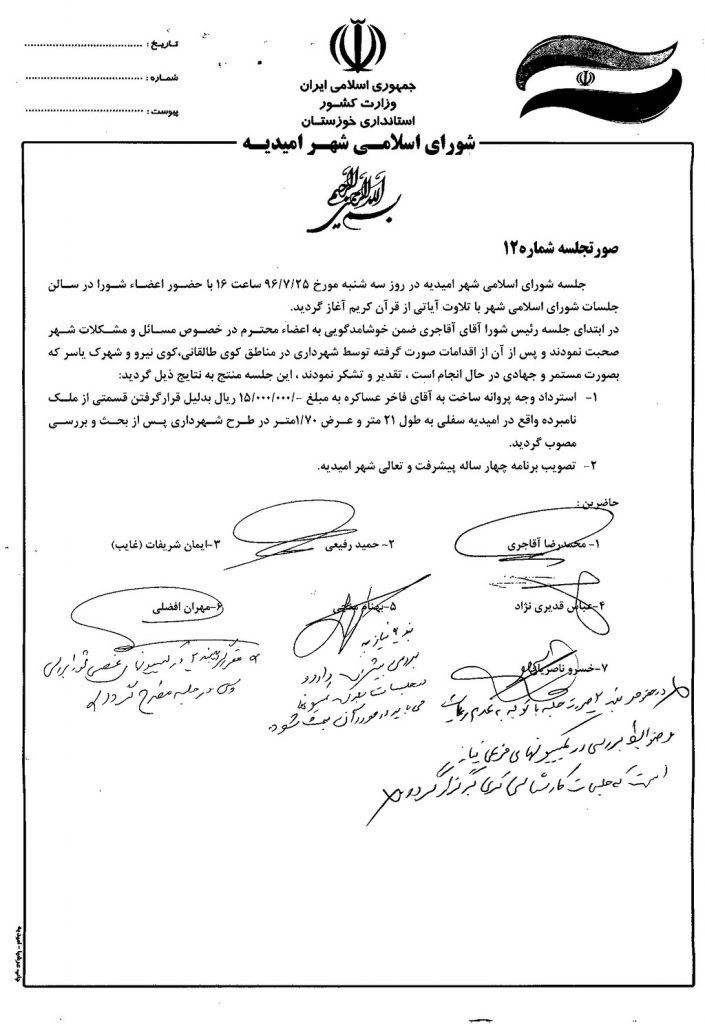 تاریخ : ........................................
شماره : ........................................
پیوست : ........................................
جمهوری اسلامی ایران
وزارت کشور
استانداری خوزستان
شورای اسلامی شهر امیدیه
بسم الله الرحمن الرحیم
صورتجلسه شماره ۱۲
جلسه شورای اسلامی شهر امیدیه در روز سه شنبه مورخ ۹۶/۷/۲۵ ساعت ۱۶ با حضور اعضاء شورا در سالن
جلسات شورای اسلامی شهر با تلاوت آیاتی از قرآن کریم آغاز گردید.
در ابتدای جلسه رئیس شورا آقای آقاجری ضمن خوشامدگویی به اعضاء محترم در خصوص مسائل و مشکلات شهر
صحبت نمودند و پس از آن از اقدامات صورت گرفته توسط شهرداری در مناطق کوی طالقانی،کوی نیرو و شهرک یاسر که
بصورت مستمر و جهادی در حال انجام است ، تقدیر و تشکر نمودند ، این جلسه منتج به نتایج ذیل گردید:
۱- استرداد وجه پروانه ساخت به آقای فاخر عساکره به مبلغ -/۱۵/۰۰۰/۰۰۰ ریال بدلیل قرارگرفتن قسمتی از ملک
نامبرده واقع در امیدیه سفلی به طول ۲۱ متر و عرض ۱/۷۰متر در طرح شهرداری پس از بحث و بررسی
مصوب گردید.
۲- تصویب برنامه چهار ساله پیشرفت و تعالی شهر امیدیه.
حاضرین :
۱- محمدرضا آقاجری
۲- حمید رفیعی
۳-ایمان شریفات (غایب)
۴-عباس قدیری نژاد
۵-بهنام
۶-مهران افضلی
۷- خسرو
بند ۲ نیاز به
بررسی بیشتری دارد و
در جلسات
می باید در مورد آن بحث شود.
در کمیسیونهای تخصصی شورا بررسی
و سپس در جلسه مطرح گردد
در خصوص بند ۲ صورت جلسه با توجه به عدم رعایت
و ضوابط بررسی در کمیسیونهای فرعی نیاز
است که جلسات کارشناسی برگزار گردد